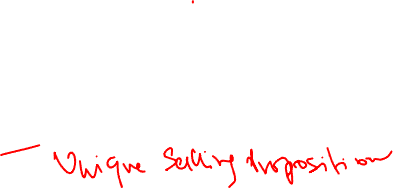 — Unique Selling Proposition